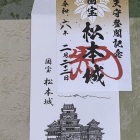 天守登閣記念
国宝 松本城
令和六年
二月二十三日
国宝 松本城